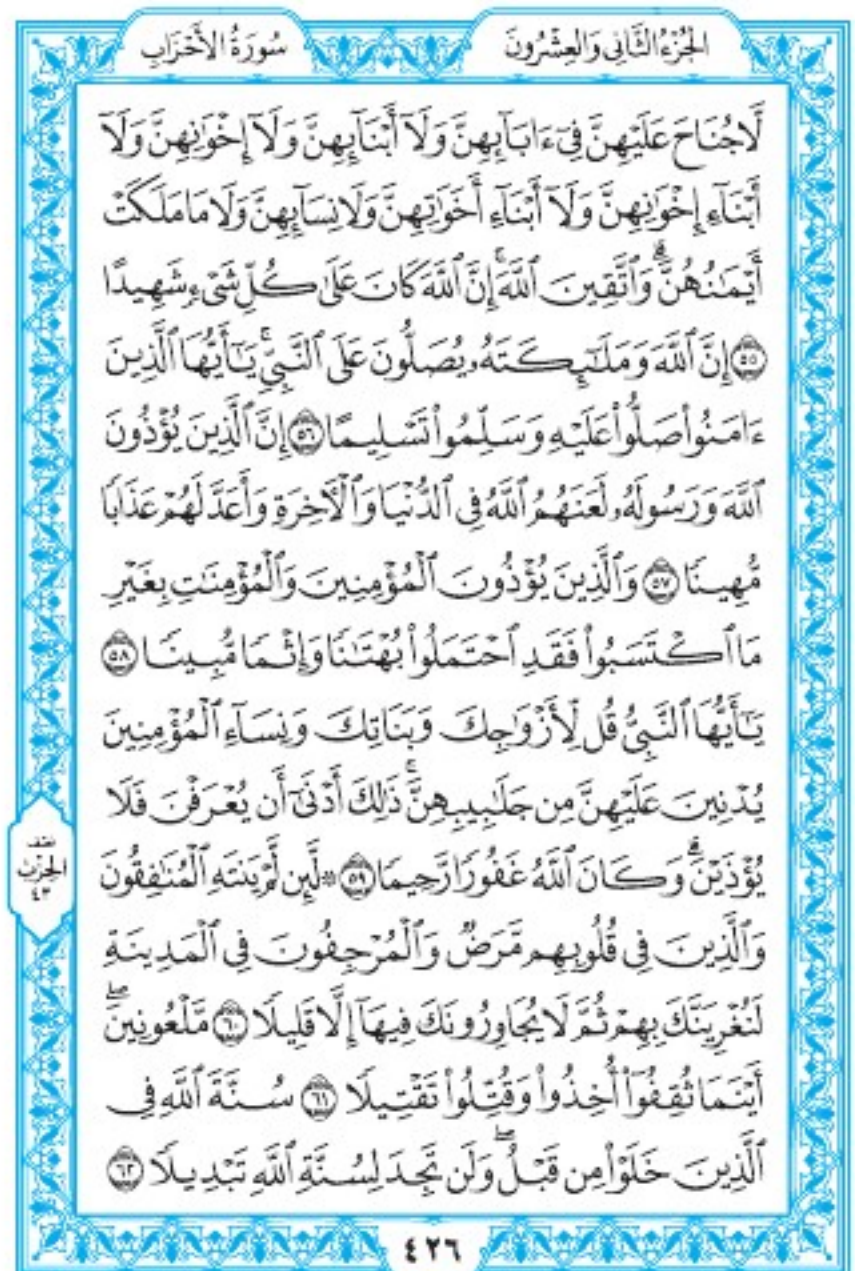 الجُزْءُ الثَّانِي وَالعِشْرُونَ
سُورَةُ الأَحْزَابِ
لَّا جُنَاحَ عَلَيْهِنَّ فِيٓ ءَابَآئِهِنَّ وَلَآ أَبْنَآئِهِنَّ وَلَآ إِخْوَٰنِهِنَّ وَلَآ
أَبْنَآءِ إِخْوَٰنِهِنَّ وَلَآ أَبْنَآءِ أَخَوَٰتِهِنَّ وَلَا نِسَآئِهِنَّ وَلَا مَا مَلَكَتْ
أَيْمَٰنُهُنَّۗ وَٱتَّقِينَ ٱللَّهَۚ إِنَّ ٱللَّهَ كَانَ عَلَىٰ كُلِّ شَىْءٍ شَهِيدًا
٥٥ إِنَّ ٱللَّهَ وَمَلَٰٓئِكَتَهُۥ يُصَلُّونَ عَلَى ٱلنَّبِىِّۚ يَٰٓأَيُّهَا ٱلَّذِينَ
ءَامَنُوا۟ صَلُّوا۟ عَلَيْهِ وَسَلِّمُوا۟ تَسْلِيمًا ٥٦ إِنَّ ٱلَّذِينَ يُؤْذُونَ
ٱللَّهَ وَرَسُولَهُۥ لَعَنَهُمُ ٱللَّهُ فِى ٱلدُّنْيَا وَٱلْءَاخِرَةِ وَأَعَدَّ لَهُمْ عَذَابًا
مُّهِينًا ٥٧ وَٱلَّذِينَ يُؤْذُونَ ٱلْمُؤْمِنِينَ وَٱلْمُؤْمِنَٰتِ بِغَيْرِ
مَا ٱكْتَسَبُوا۟ فَقَدِ ٱحْتَمَلُوا۟ بُهْتَٰنًا وَإِثْمًا مُّبِينًا ٥٨
يَٰٓأَيُّهَا ٱلنَّبِىُّ قُل لِّأَزْوَٰجِكَ وَبَنَاتِكَ وَنِسَآءِ ٱلْمُؤْمِنِينَ
يُدْنِينَ عَلَيْهِنَّ مِن جَلَٰبِيبِهِنَّۚ ذَٰلِكَ أَدْنَىٰٓ أَن يُعْرَفْنَ فَلَا
يُؤْذَيْنَۗ وَكَانَ ٱللَّهُ غَفُورًا رَّحِيمًا ٥٩ ۞ لَّئِن لَّمْ يَنتَهِ ٱلْمُنَٰفِقُونَ
وَٱلَّذِينَ فِى قُلُوبِهِم مَّرَضٌ وَٱلْمُرْجِفُونَ فِى ٱلْمَدِينَةِ
لَنُغْرِيَنَّكَ بِهِمْ ثُمَّ لَا يُجَاوِرُونَكَ فِيهَآ إِلَّا قَلِيلًا ٦٠ مَّلْعُونِينَۖ
أَيْنَمَا ثُقِفُوٓا۟ أُخِذُوا۟ وَقُتِّلُوا۟ تَقْتِيلًا ٦١ سُنَّةَ ٱللَّهِ فِى
ٱلَّذِينَ خَلَوْا۟ مِن قَبْلُۖ وَلَن تَجِدَ لِسُنَّةِ ٱللَّهِ تَبْدِيلًا ٦٢
نصف
الحِزْب
٤٣
٤٢٦